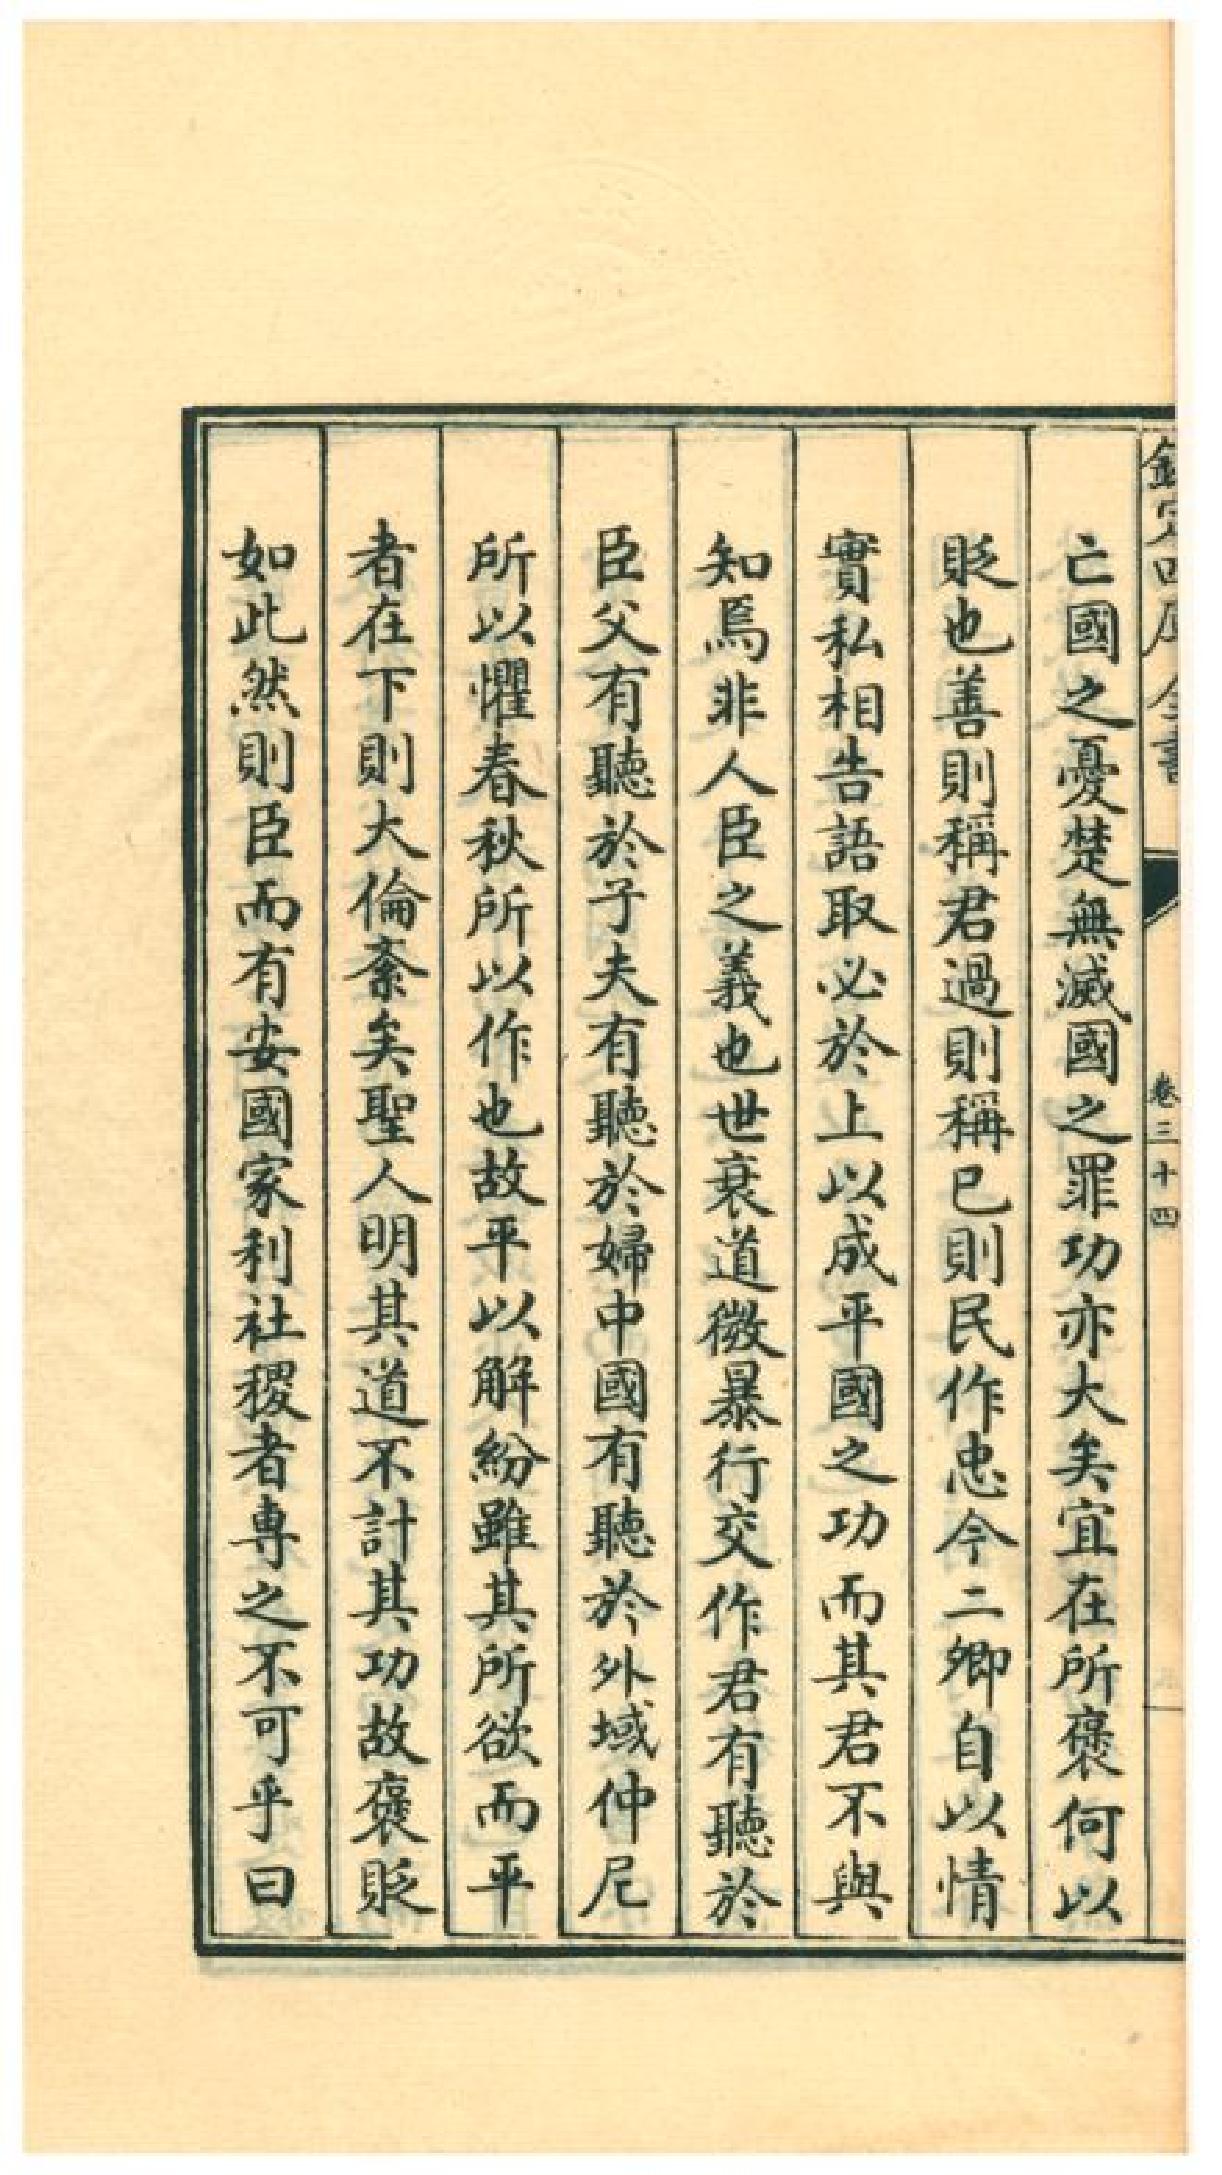 欽定四庫全書
卷三十四
亡國之憂楚無滅國之罪功亦大矣宜在所褒何以
貶也善則稱君過則稱已則民作忠今二卿自以情
實私相告語取必於上以成平國之功而其君不與
知焉非人臣之義也世衰道微暴行交作君有聽於
臣父有聽於子夫有聽於婦中國有聽於外域仲尼
所以懼春秋所以作也故平以解紛雖其所欲而平
者在下則大倫紊矣聖人明其道不計其功故褒貶
如此然則臣而有安國家利社稷者專之不可乎曰